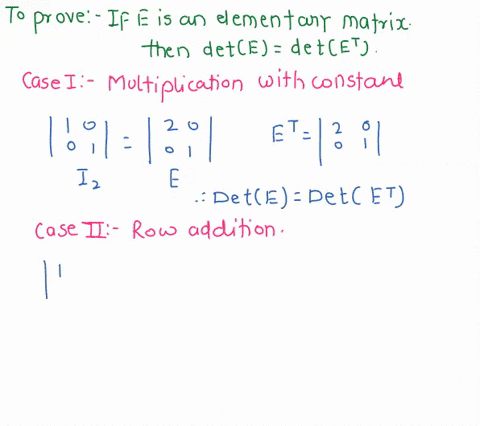 To prove:- If E is an elementary matrix
then det(E) = det(Eᵀ).
Case I:- Multiplication with constant
|1 0| = |2 0| Eᵀ = |2 0|
|0 1| |0 1| |0 1|
I₂ E
∴ Det(E) = Det(Eᵀ)
Case II:- Row addition.
|1